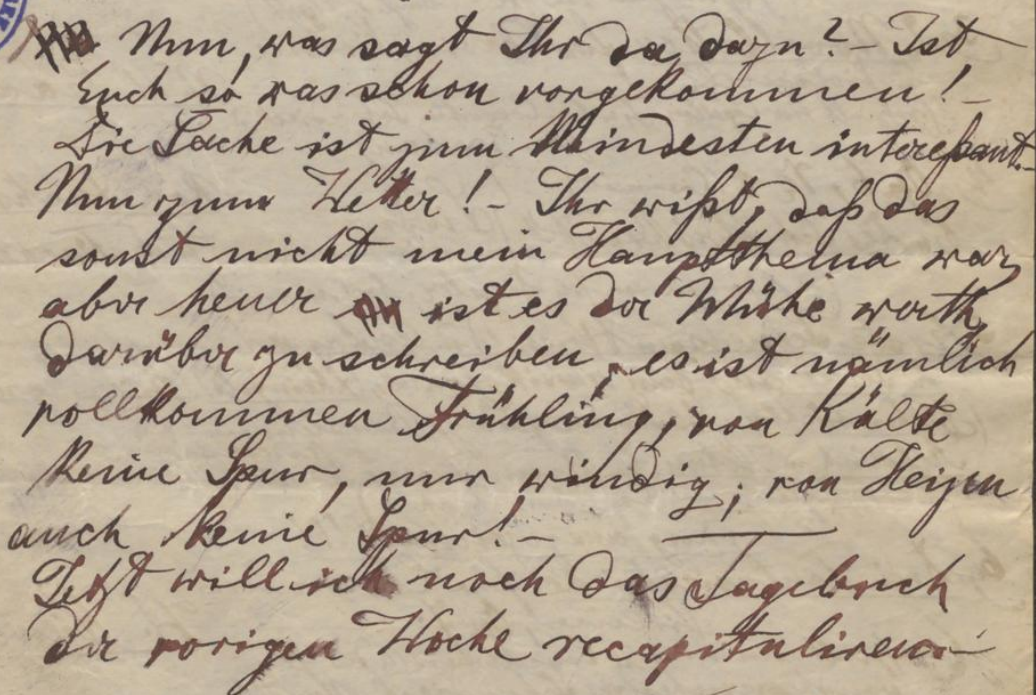 Nun, was sagt Ihr da dazu? - Ist
Euch so was schon vorgekommen! -
Die Sache ist zum Mindesten intereßant.
Nun zum Wetter! - Ihr wißt, daß das
sonst nicht mein Hauptthema war,
aber heuer ist es der Mühe werth,
darüber zu schreiben, es ist nämlich
vollkommen Frühling, von Kälte
keine Spur, nur windig; von Heizen
auch keine Spur! -
Jetzt will ich noch das Tagebuch
der vorigen Woche recapituliren -